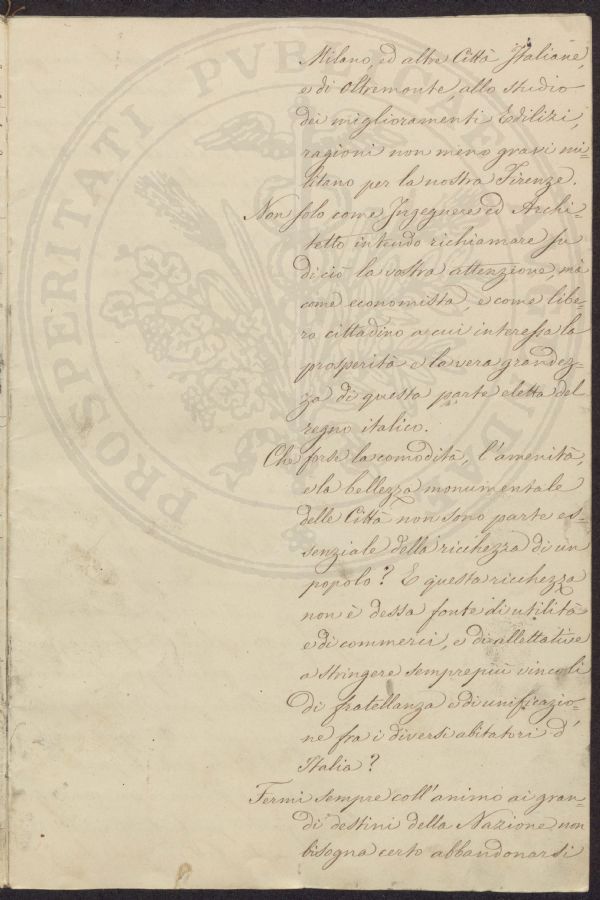 Milano, ed altre Città Italiane,
e di oltremonte, allo studio
dei miglioramenti Edilizi,
ragioni non meno gravi mi=
litano per la nostra Firenze.
Non solo come Ingegnere ed Archi=
tetto intendo richiamare su
di ciò la vostra attenzione, mà
come economista, e come libe=
ro cittadino a cui interessa la
prosperità e la vera grandez=
za di questa parte eletta del
regno italico.
Che forse la comodità, l'amenità,
e la bellezza monumentale
delle Città non sono parte es=
senziale della ricchezza di un
popolo? E questa ricchezza
non è dessa fonte di utilità
e di commerci, e di allettative
a stringere semprepiù vincoli
di fratellanza e di unificazio=
ne fra i diversi abitatori d'
Italia?
Fermi sempre coll'animo ai gran=
di destini della Nazione, non
bisogna certo abbandonarsi
PROSPERITATI PVBLICAE